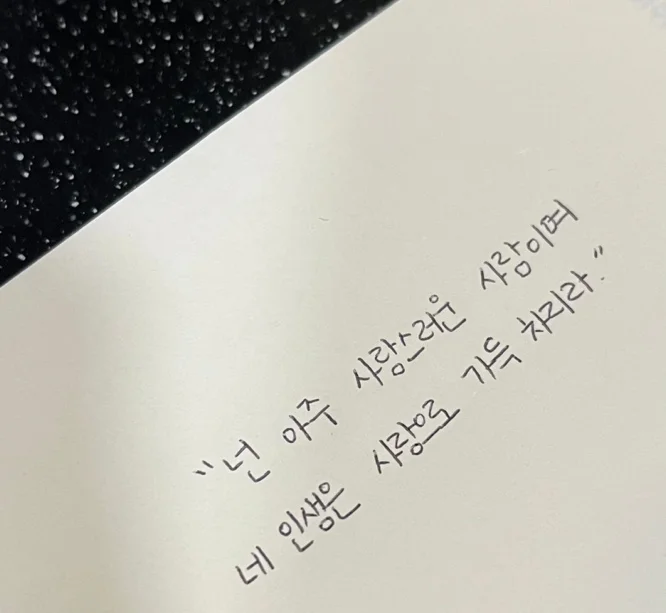 "넌 아주 사랑스러운 사람이며
네 인생은 사랑으로 가득 차리라."